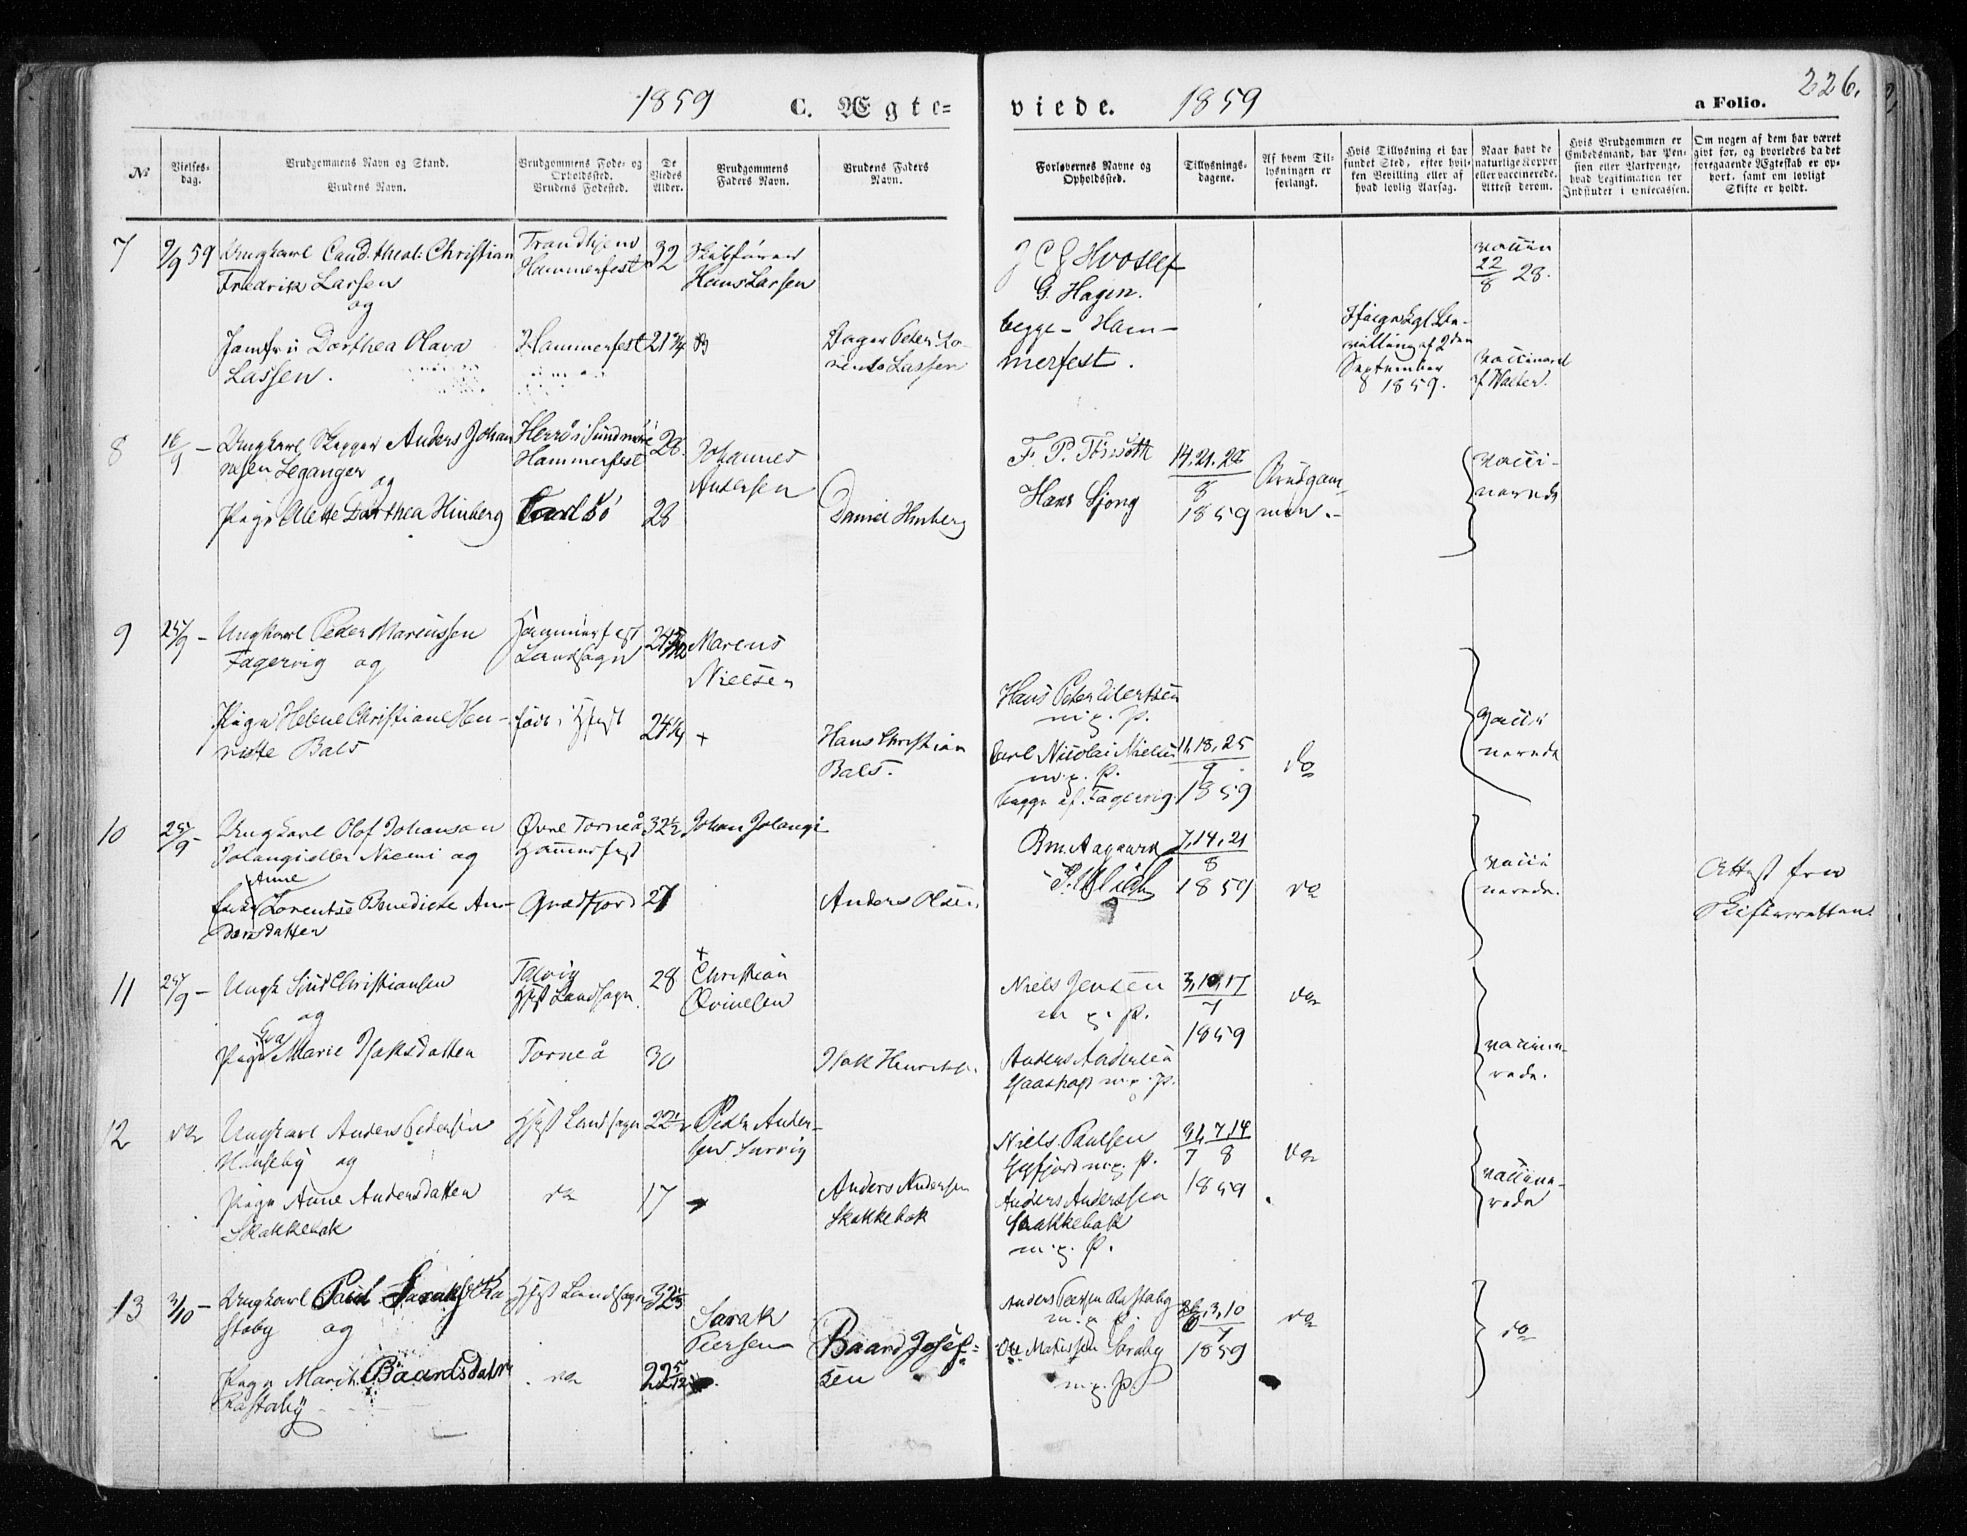 1859 C. Ægte=
viede. 1859 a Folio. 226.
No
Vielses-
dag.
Brudgommens Navn og Stand.
Brudens Navn.
Brudgommens Føde- og
Opholdssted.
Brudens Fødested.
De
Viedes
Alder.
Brudgommens
Faders Navn.
Brudens Faders
Navn.
Forlovernes Navne og
Opholdssted.
Tillysnings-
dagene.
Af hvem Til-
lysningen er
forlangt.
Hvis Tillysning ei har
fundet Sted, efter hvil-
ken Bevilling eller af
hvad lovlig Aarsag.
Naar havt de
naturlige Kopper
eller vaccinerede.
Attest derom.
Hvis Brudgommen er
Embedsmand, har Pen-
sion eller Vartpenge,
hvad Legitimation for
Indskudet i Enkecassen.
Om nogen af dem har været
gift før, og hvorledes da det
foregaaende Ægteskab er op-
hørt, samt om lovligt
Skifte er holdt.
7 9/9 59 Ungkarl Cand. theol. Christian
Fredrik Larsen
og
Jomfru Dorthea Olava
Lassen.
Trondhjem
Hammerfest
Hammerfest
32
21 3/4
Skibfører
Hans Larsen
Peter Lo-
rents Lassen
J C G Hvoslef
G. Hagen.
begge Ham-
merfest.
Ifølge Kgl. Be-
villing af 2den
September
1859.
vaccin
22/8 28.
vaccineret
af Walter.
8 16/9 - Ungkarl Skipper Anders Johan
nesen Leganger
og
Pige Alette Dorthea Hinberg
Herrø i Sundmøre
Hammerfest
Carlsø
28
28
Johannes
Andersen
Daniel Hinberg
F. P.
Hans
14. 21. 28
8
1859
Brudgom-
men.-
vacci-
nerede
9 25/9 - Ungkarl Peder Marcussen
Fagervig og
Pige Helene Christiane Hen-
riette Bals
Hammerfest
Landsogn
født i Hfest
24 1/4
+
Marcus
Nielsen
Hans Christian
Bals.
Hans Peter Eilertsen
m. p. P.
Carl Nicolai Nielsen
m. p. P.
begge af Fagervig
11, 18, 25
9
1859
do
vacci
nerede
10 25/9 - Ungkarl Olof Johanson
Jolangi eller Niemi og
Anne
Lorentse Benedicte An-
dersdatter
Øvre Torneå
Hammerfest
Qvædfjord
32 1/2
27
Johan Jolangi
Anders Olsen
Aagaard
7, 14, 21
8
1859
do
vacci
nerede.
Attest fra
Skifteretten.
11 25/9 - Ungk Sjur Christiansen
og
Eva
Pige Marie Isaksdatter
Talvig
Hfest Landsogn
Torneå
28
30
+
Christian
Qvinelen
Isak Henriks.
Niels Jensen
m. p. P.
Anders Andersen
m. p. P.
3, 10, 17
7
1859
do
vaccine-
rede.
12 do Ungkarl Anders Pedersen
Hanseby og
Pige Anne Andersdatter
Skakkebak
Hfest Landsogn
do
22 1/2
17
Peder Ander-
sen
Anders Andersen
Skakkebak
Niels Paulsen
m. p. P.
Anders Anderssen
Skakkebak
m. p. P.
31, 7, 14
7 8
1859
do
vaccine-
rede
13 3/10 - Ungkarl Paul Sarak Ra
staby og
Pige Marit Baardsdatter
Rastaby
Hfest Landsogn
do
32
22 5/12
Sarak
Peersen
Baard Josef-
sen
Anders Peersen Rastaby
m. p. P.
Ole Mathissen Saraby
m. p. P.
26, 3, 10
7
1859
do
do